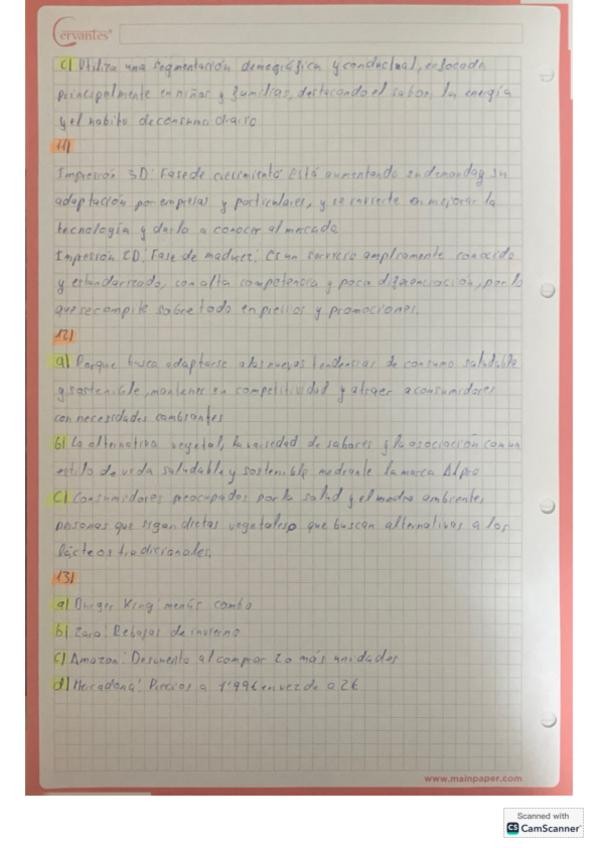 Cervantes
c) Utiliza una segmentación demográfica y conductual, enfocada
principalmente en niños y familias, destacando el sabor, la energía
y el habito de consumo diario
11)
Impresión 3D: Fase de crecimiento Está aumentando su demanda y su
adaptación por empresas y particulares, y se invierte en mejorar la
tecnología y darlo a conocer al mercado
Impresión 2D: Fase de madurez: Es un servicio ampliamente conocido
y estandarizado, con alta competencia y poca diferenciación, por lo
que se compite sobre todo en precios y promociones.
12)
a) Porque busca adaptarse a las nuevas tendencias de consumo saludable
y sostenible, mantener su competitividad y atraer a consumidores
con necesidades cambiantes
b) La alternativa vegetal, la variedad de sabores y la asociación con un
estilo de vida saludable y sostenible mediante la marca Alpro
c) Consumidores preocupados por la salud y el medio ambiente,
personas que sigan dietas vegetales o que buscan alternativas a los
lácteos tradicionales.
13)
a) Burger King: menús combo
b) Zara: Rebajas de invierno
c) Amazon: Descuento al comprar 2 o más unidades
d) Mercadona: Precios a 1'99€ en vez de a 2€
www.mainpaper.com
Scanned with
CS CamScanner